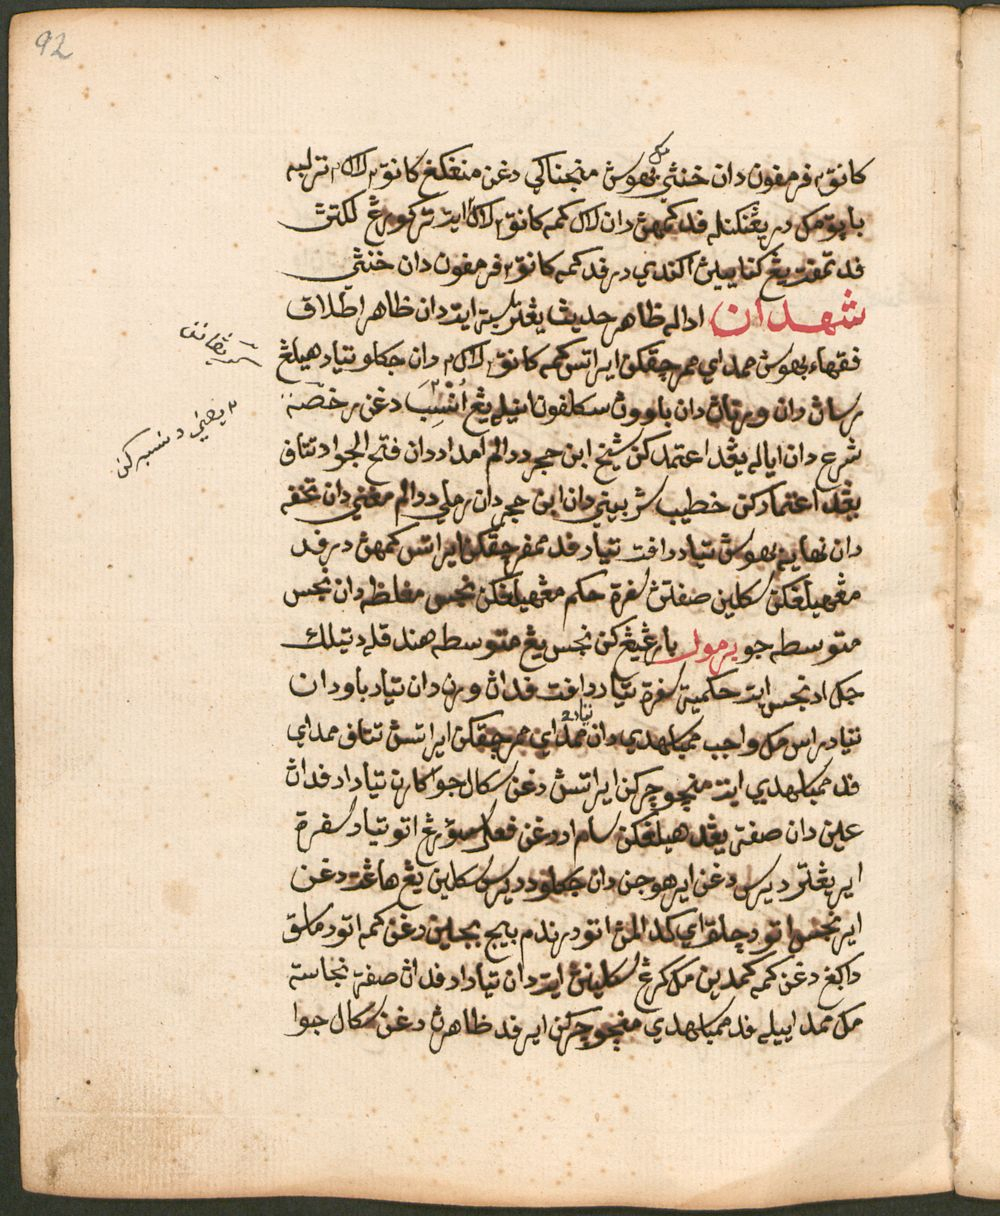 92
كانق٢ فرمفون دان خنثى بهوس منجناكي دغن منغكغ كانق٢ لاك٢ ترلبه
باپق مك دريڠنكنله فد كمهن دان لاك كمه كانق٢ لاك٢ ايت تركورڠ لكتن
فد تمفت يڠ كنا بيلن اكندي درفد كمه كانق٢ فرمفون دان خنثى
شهدان اداله ظاهر حديث يڠترسبة ايت دان ظاهر اطلاق
فقهاء بهوس ممداي ممرچقكن اير اتس كمه كانق٢ لاك٢ دان جكلو تياد هيلڠ
رساڽ دان ورناڽ دان باووڽ سكلفون انيله يڠ أنسب دغن رخصة
شرع دان اياله يڠد اعتمدكن شيخ ابن حجر ددالم امداد دان فتح الجواد تتاف
يڠد اعتمادكن خطيب شربيني دان ابن حجر دان رملي ددالم مغني دان تحفه
دان نهاية بهوس تياد دافت تياد فد ممرچقكن اير اتس كمهن درفد
مڠهيلڠكن سكلين صفتن سفرة حكم مڠهيلڠكن نجس مغلظه دان نجس
متوسطه جو برمول بارڠيڠ كن نجس يڠ متوسطه هندقله دتيلك
جك اد نجس ايت حكمية سفرة تياد دافت فداڽ ورن دان تياد باو دان
تياد راس مك واجب ممباسهدي دان تياد2 ممداي ممرچقكن اير اتسڽ تتاف ممداي
فد ممباسهدي ايت منچوچركن اير اتسڽ دغن سكال جوا كارن تياد اد فداڽ
عين دان صفة يڠد هيلڠكن سام اد دغن فعل سؤرڠ اتو تياد سفرة
اير يڠتر ديرس دغن اير هوجن دان جكلو دديرس سكلين يڠ هاڠت دغن
اير نجس اتو دچلف اي كدالمڽ اتو درندم بيج بجين دغن كمه اتو دماسق
داكڠ دغن كمه كمدين مك كرڠ سكلينڽ ايت دان تياد اد فداڽ صفة نجاسة
مك ممداييله فد ممباسهدي منچوچركن اير فد ظاهرڽ دغن سكال جوا
٢ يعني دنسبهكن